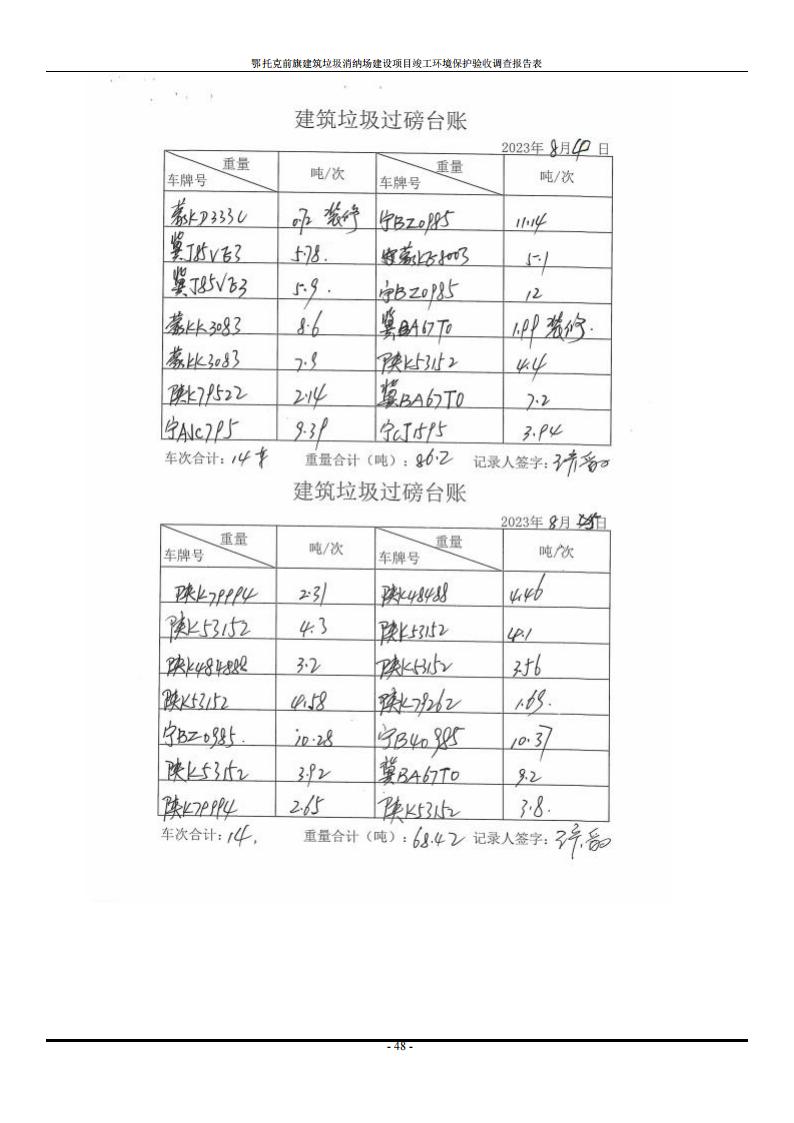 鄂托克前旗建筑垃圾消纳场建设项目竣工环境保护验收调查报告表
建筑垃圾过磅台账
2023年 8月 日
重量 车牌号 吨/次 重量 车牌号 吨/次
蒙KD333C 0.72 装修 宁BZ0985 11.14
冀J85VE3 5.78. 蒙KE8003 5.1
冀J85VE3 5.9. 宁BZ0985 12
蒙KK3083 8.6 冀BA67T0 1.99 装修.
蒙KK3083 7.9 陕K53152 4.4
陕K79522 2.14 冀BA67T0 7.2
宁AJC795 9.39 宁CJ1595 3.94
车次合计：14车 重量合计（吨）：86.2 记录人签字：
建筑垃圾过磅台账
2023年 8月 日
重量 车牌号 吨/次 重量 车牌号 吨/次
陕K79994 2.31 陕K48488 4.46
陕K53152 4.3 陕K53152 4.1
陕K484888 3.2 陕K53152 3.56
陕K53152 4.58 陕K79262 1.69.
宁BZ0985. 10.28 宁B40985 10.37
陕K53152 3.92 冀BA67T0 9.2
陕K79994 2.65 陕K53152 3.8.
车次合计：14. 重量合计（吨）：68.42 记录人签字：
- 48 -